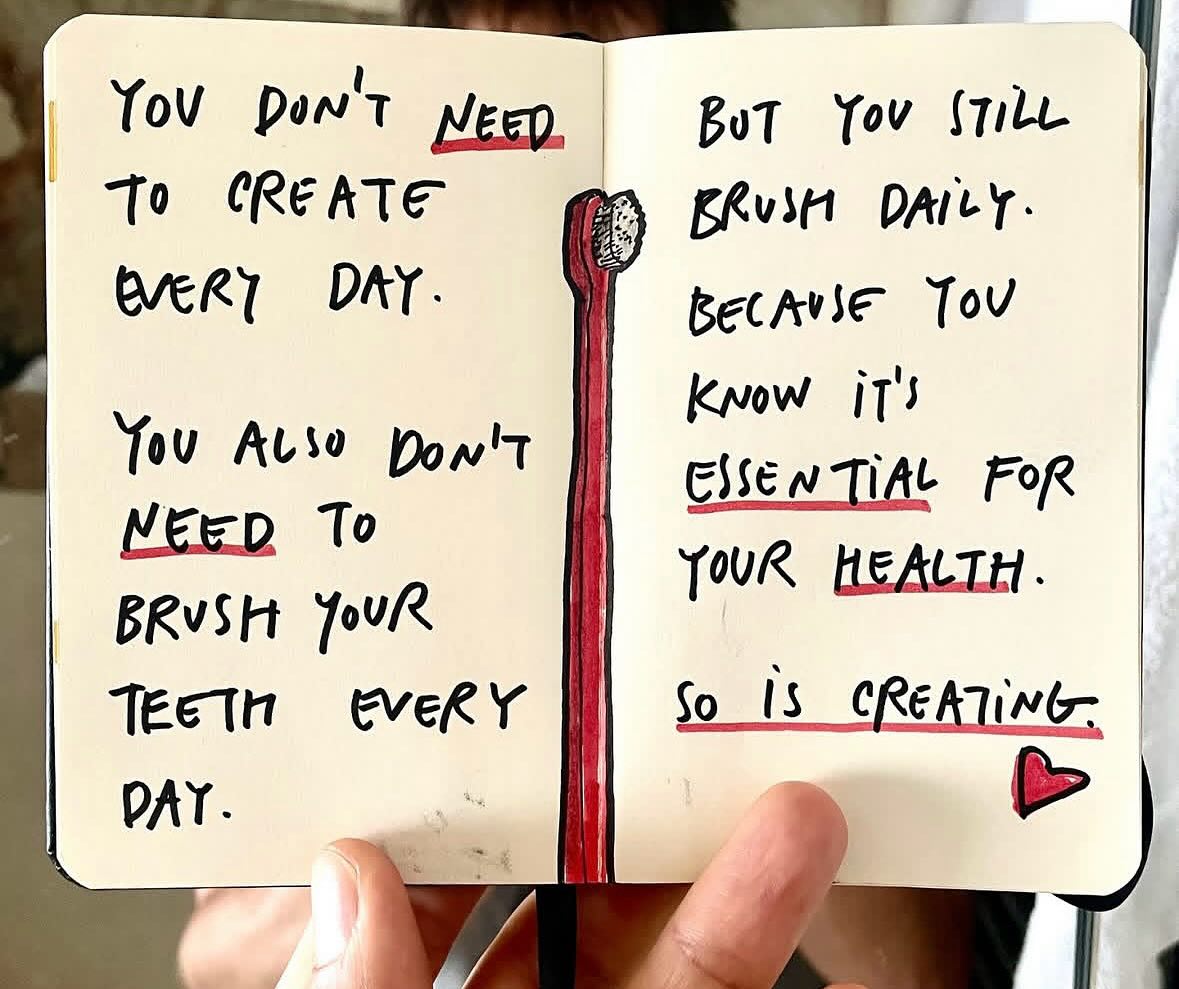 YOU DON'T NEED
TO CREATE
EVERY DAY.
YOU ALSO DON'T
NEED TO
BRUSH YOUR
TEETH EVERY
DAY.
BUT YOU STILL
BRUSH DAILY.
BECAUSE YOU
KNOW IT'S
ESSENTIAL FOR
YOUR HEALTH.
SO IS CREATING.